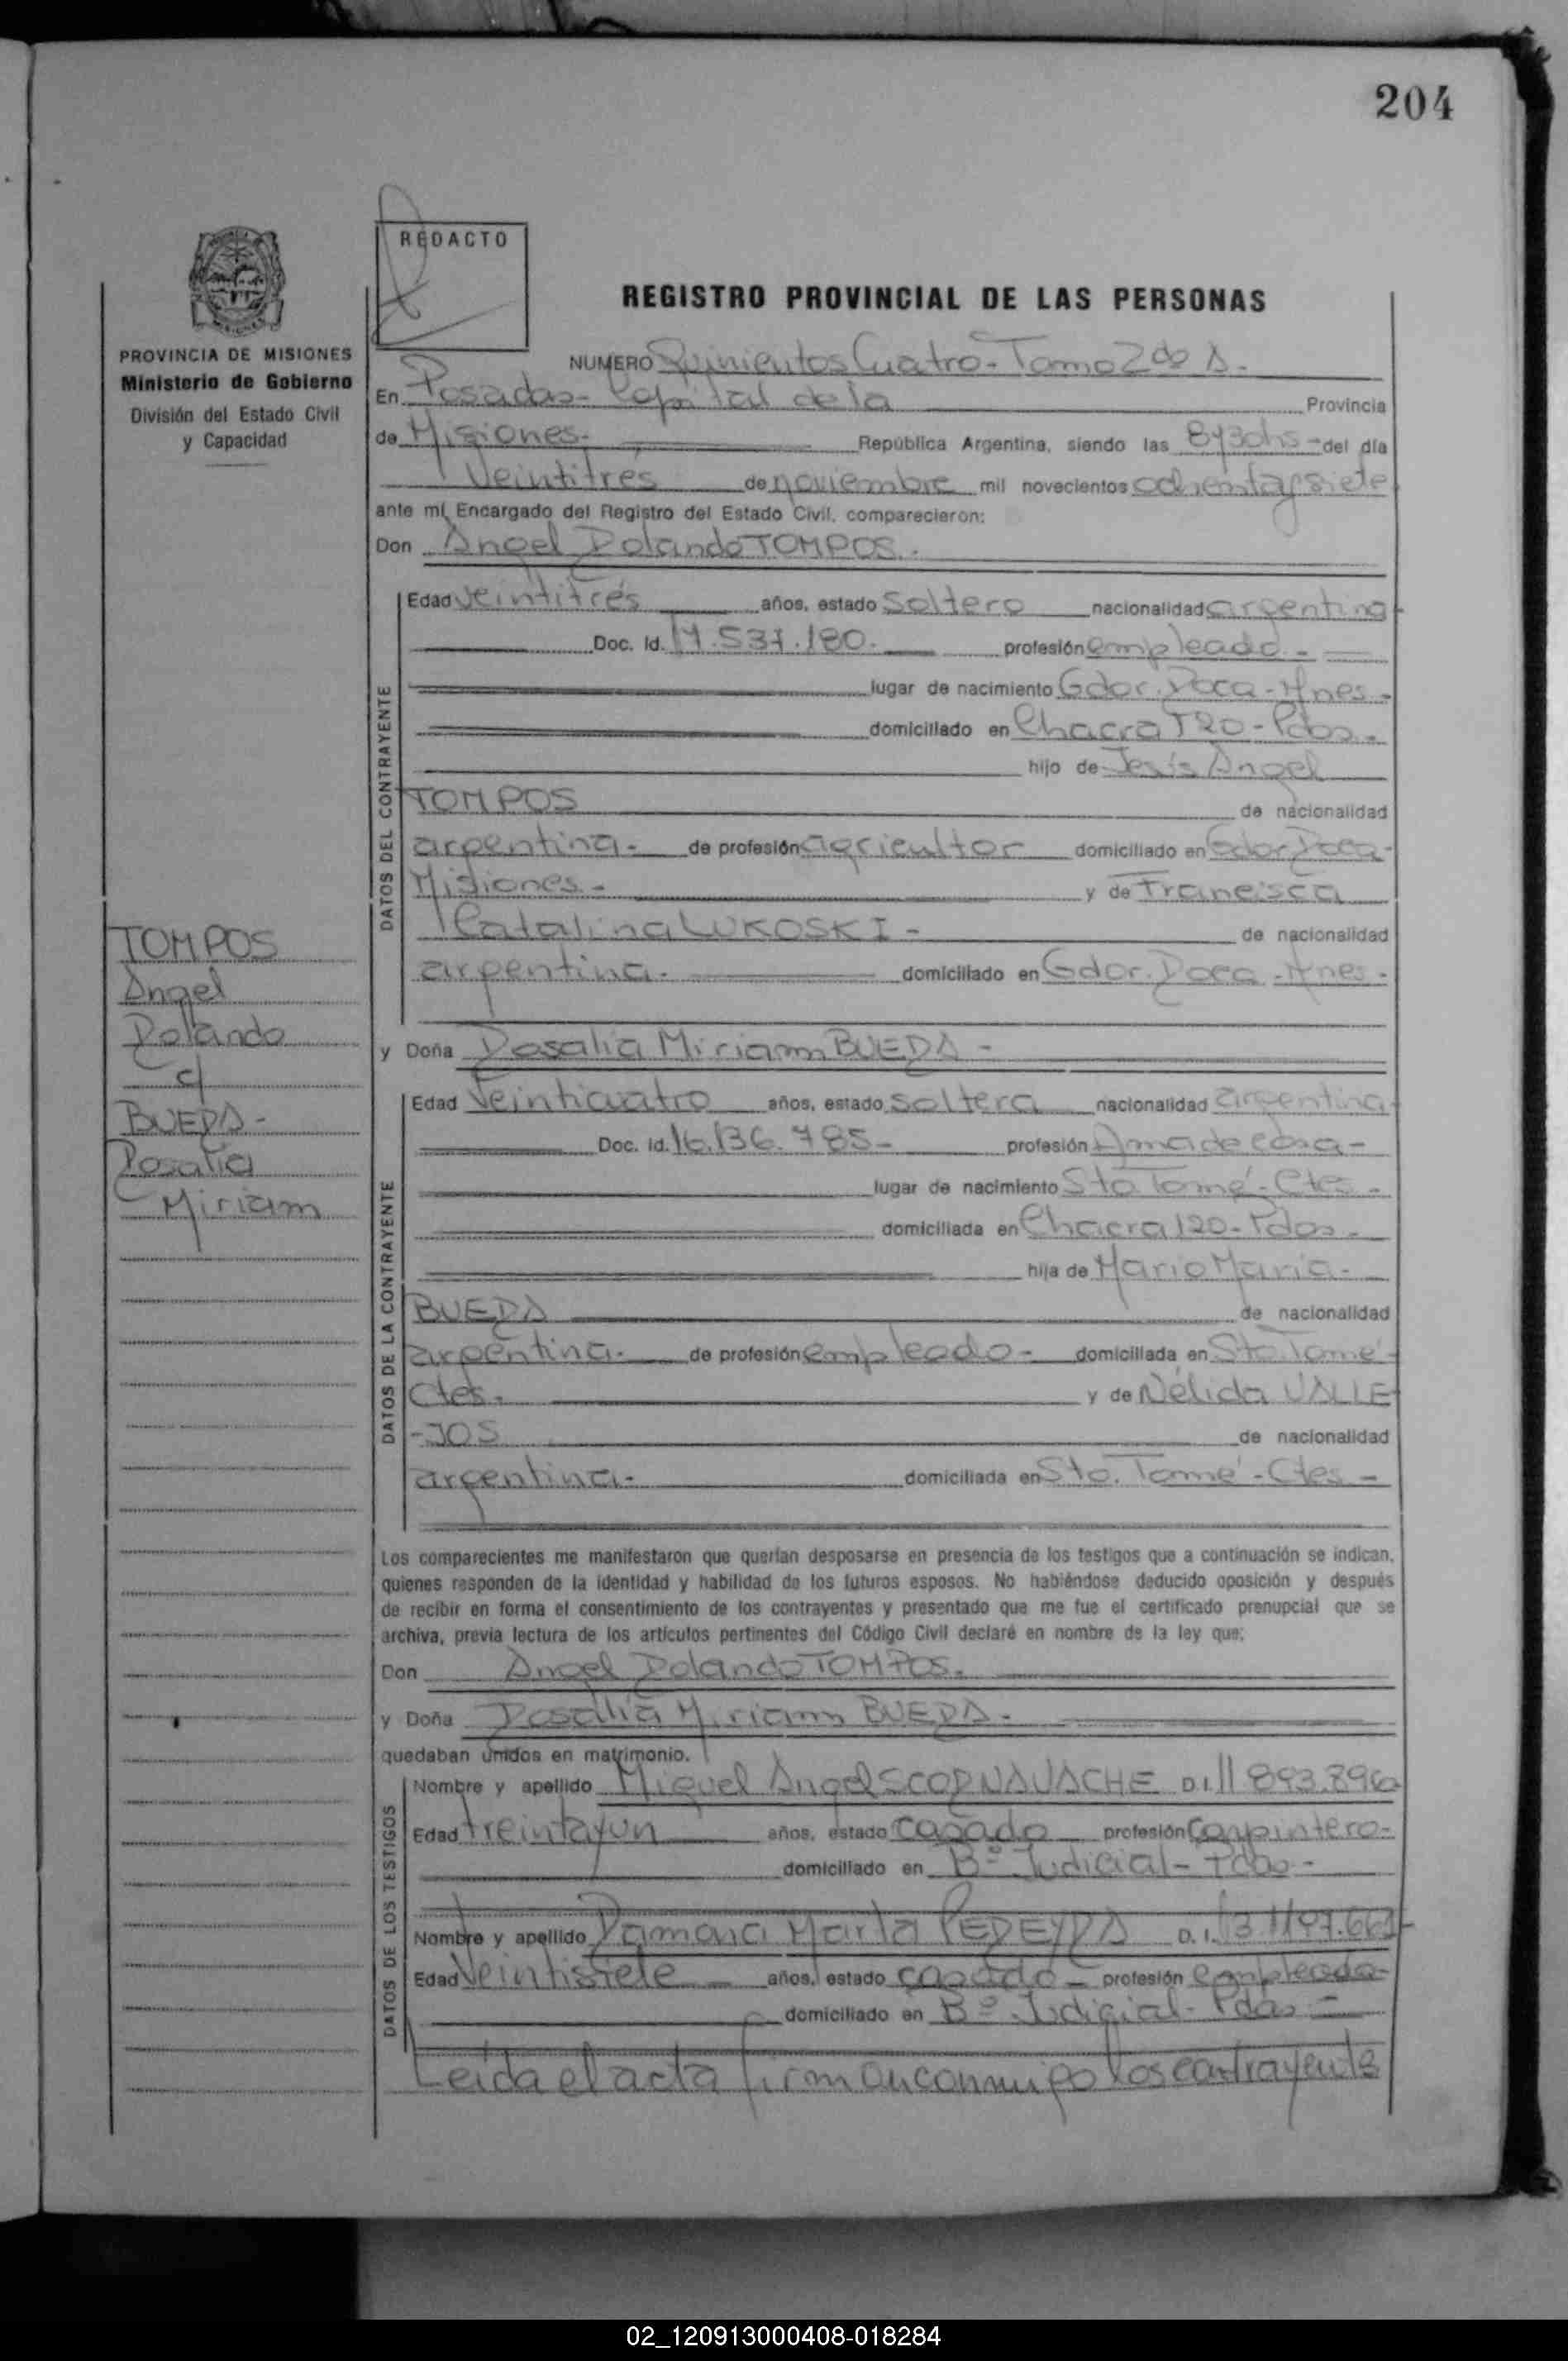 204
REDACTO
REGISTRO PROVINCIAL DE LAS PERSONAS
PROVINCIA DE MISIONES
Ministerio de Gobierno
División del Estado Civil
y Capacidad
NUMERO Quinientos Cuatro - Tomo 2do A.-
En Posadas - Capital de la Provincia
de Misiones.- República Argentina, siendo las 8y30hs - del día
Veintitrés de noviembre mil novecientos ochentaysiete
ante mí, Encargado del Registro del Estado Civil, comparecieron:
Don Angel Rolando TOMPOS.
Edad veintitrés años, estado Soltero nacionalidad argentina
Doc. Id. 17.537.180.- profesión empleado.-
lugar de nacimiento Gdor. Roca - Mnes.-
domiciliado en Chacra 120 - Pdas.-
hijo de Jesús Angel
TOMPOS de nacionalidad
argentina.- de profesión agricultor domiciliado en Gdor Roca -
Misiones.- y de Francisca
Catalina LUKOSKI - de nacionalidad
argentina.- domiciliado en Gdor. Roca - Mnes.-
y Doña Rosalia Miriam BUERA -
Edad Veinticuatro años, estado soltera nacionalidad argentina-
Doc. Id. 16.136.785- profesión Ama de casa-
lugar de nacimiento Sto Tomé - Ctes -
domiciliada en Chacra 120 - Pdas -
hija de Mario Maria -
BUERA de nacionalidad
argentina.- de profesión empleado - domiciliada en Sto. Tomé -
Ctes. - y de Nélida VALLE
-JOS de nacionalidad
argentina.- domiciliada en Sto. Tomé - Ctes -
DATOS DEL CONTRAYENTE
DATOS DE LA CONTRAYENTE
TOMPOS
Angel
Rolando
c/
BUERA -
Rosalia
Miriam
Los comparecientes me manifestaron que querían desposarse en presencia de los testigos que a continuación se indican,
quienes responden de la identidad y habilidad de los futuros esposos. No habiéndose deducido oposición y después
de recibir en forma el consentimiento de los contrayentes y presentado que me fue el certificado prenupcial que se
archiva, previa lectura de los artículos pertinentes del Código Civil declaré en nombre de la ley que:
Don Angel Rolando TOMPOS.
y Doña Rosalia Miriam BUERA.-
quedaban unidos en matrimonio.
DATOS DE LOS TESTIGOS
Nombre y apellido Miguel Angel SCORNAVACHE D.I. 11 893.896
Edad treintayun años, estado casado profesión Carpintero-
domiciliado en Bº Judicial - Pdas -
Nombre y apellido Ramona Marta PEREYRA D.I. 13.1197.661
Edad Veintisiete años, estado casado - profesión empleada-
domiciliado en Bº Judicial - Pdas -
Leída el acta firman conmigo los contrayentes
02_120913000408-018284